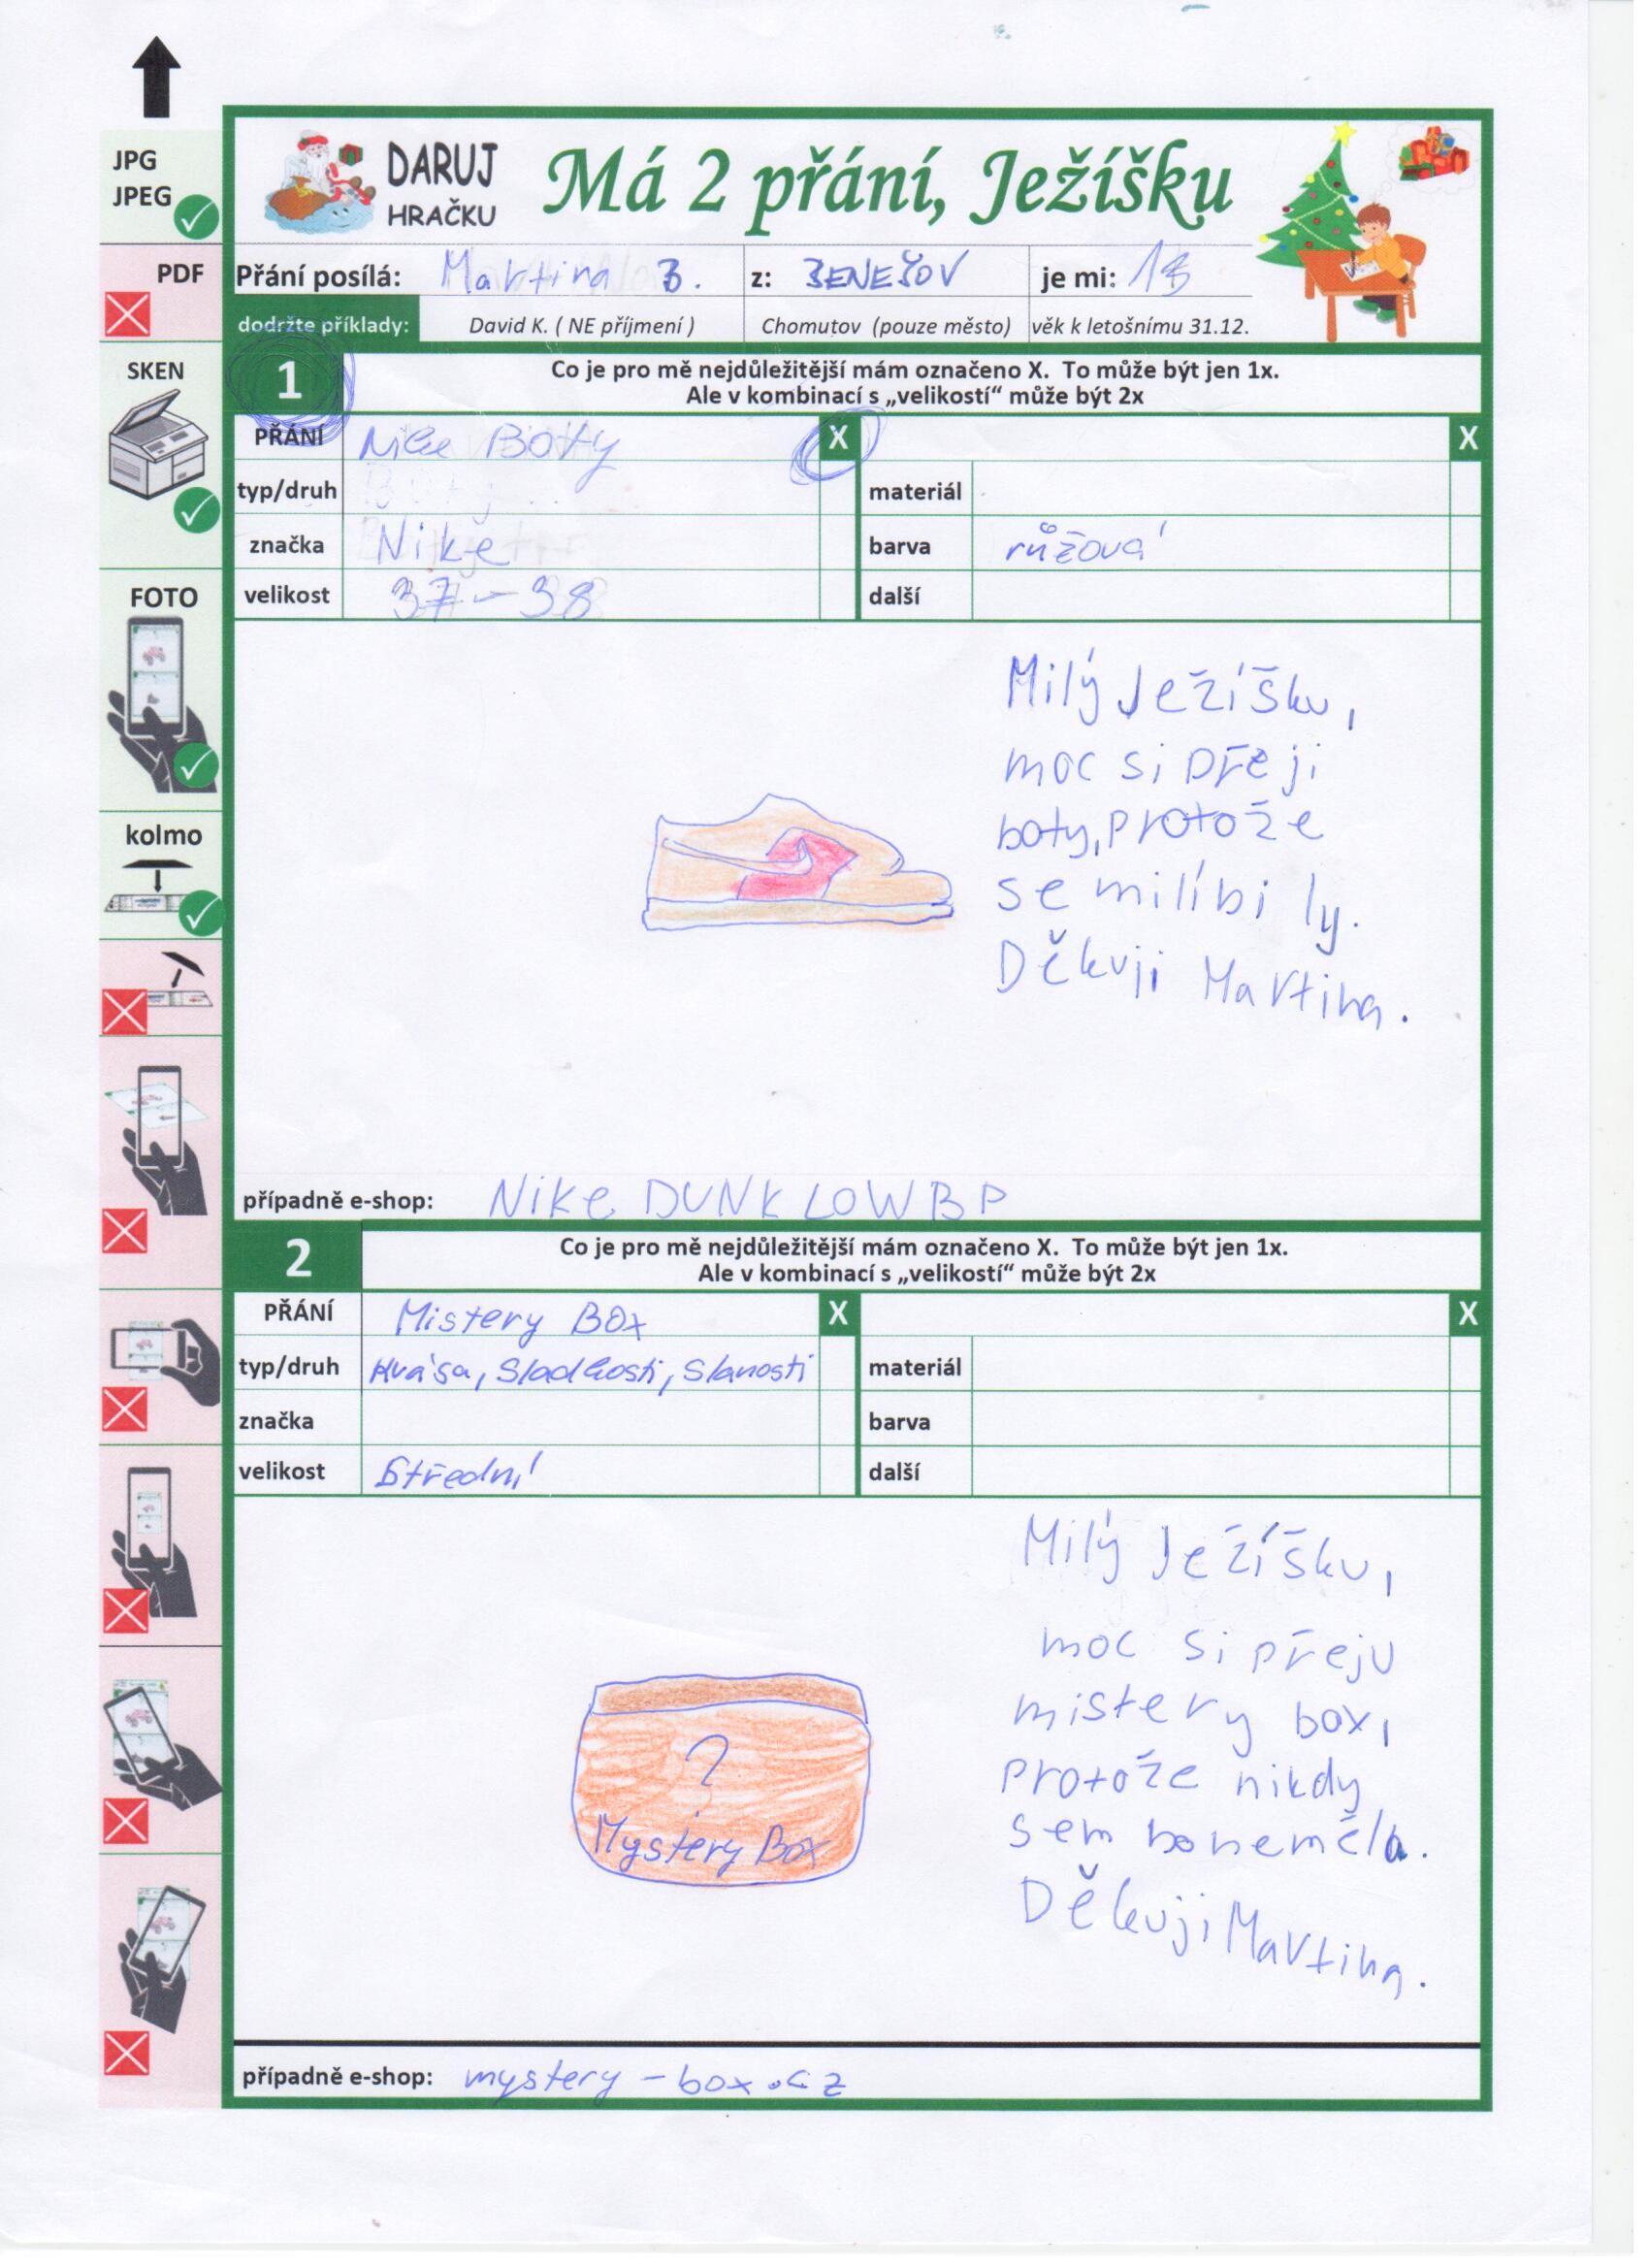 JPG
JPEG
PDF
SKEN
FOTO
kolmo
DARUJ
HRAČKU
Má 2 přání, Ježíšku
Přání posílá: Martina B. z: BENEŠOV je mi: 13
dodržte příklady: David K. ( NE příjmení ) Chomutov (pouze město) věk k letošnímu 31.12.
1 Co je pro mě nejdůležitější mám označeno X. To může být jen 1x.
Ale v kombinací s „velikostí“ může být 2x
PŘÁNÍ Nike Boty X X
typ/druh materiál
značka Nike barva růžová
velikost 37-38 další
Milý Ježíšku,
moc si přeji
boty, protože
se milíbi ly.
Děkuji Martina.
případně e-shop: Nike DUNK LOW B P
2 Co je pro mě nejdůležitější mám označeno X. To může být jen 1x.
Ale v kombinací s „velikostí“ může být 2x
PŘÁNÍ Mistery Box X X
typ/druh Krása, Sladkosti, Slanosti materiál
značka barva
velikost Střední další
Milý Ježíšku,
moc si přeju
mistery box,
protože nikdy
sem ho neměla.
Děkuji Martina.
?
Mystery Box
případně e-shop: mystery-box.cz